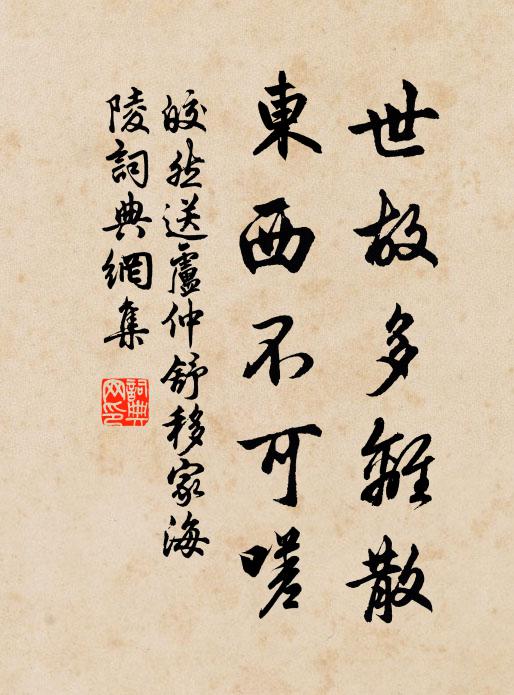 世故多離散
東西不可嗟
皎然送盧仲舒移家海
陵詞典網集
詞典網印